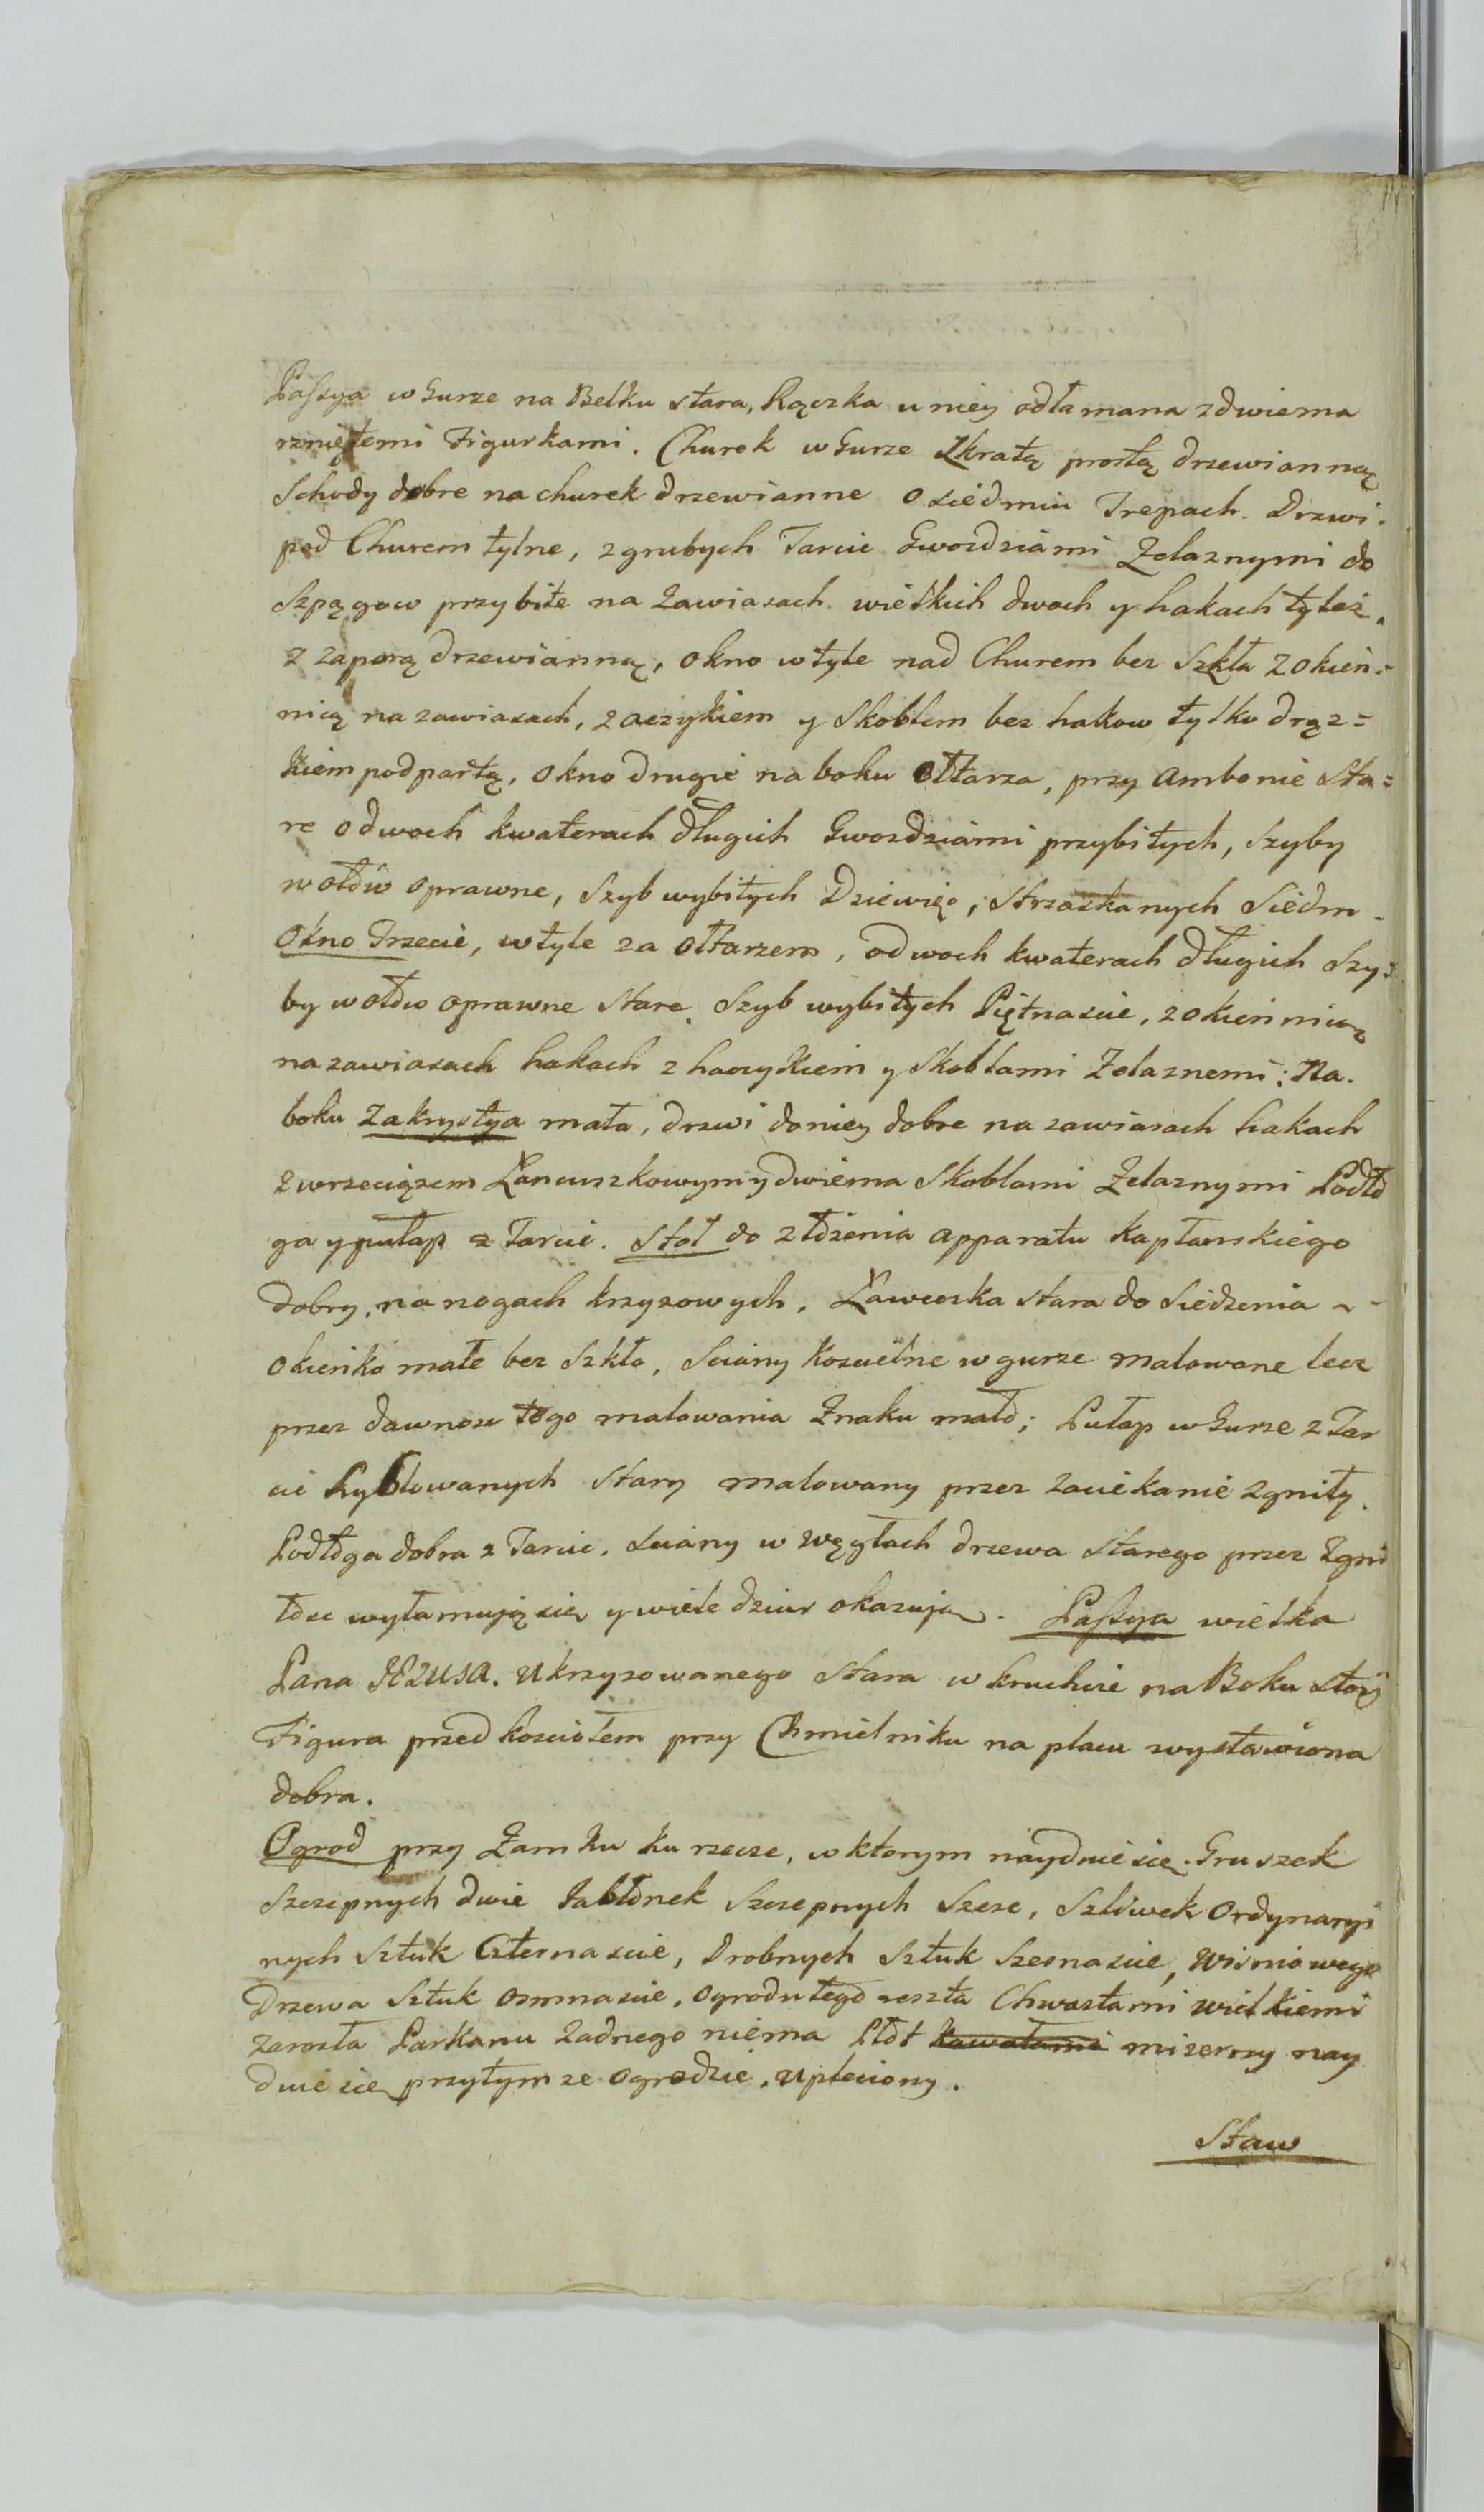 Passya w Gurze na Belku stara, Rączka u niey odłamana z dwiema
rzniętemi Figurkami. Churek w Gurze Zkratą prostą drzewianną
Schody dobre na churek drzewianne o siedmiu Trepach. Drzwi.
pod Churem tylne, z grubych Tarcic Gwozdziami Zelaznymi do
Szpągow przybite na Zawiasach wielkich dwoch y hakach tyleż,
z zaporą drzewianną, okno w tyle nad Churem bez Szkła z okien=
nicą na zawiasach, z aczykiem y Skoblem bez hakow tylko drąz=
kiem podpartą, okno drugie na boku ołtarza, przy Ambonie Sta=
re o dwoch kwaterach długich Gwozdziami przybitych, Szyby
w ołow oprawne, Szyb wybitych Dziewięc, strzaskanych Siedm.
Okno Trzecie, w tyle za ołtarzem, o dwoch kwaterach długich Szy=
by w ołow oprawne stare. Szyb wybitych Piętnascie, z okiennicą
na zawiasach hakach z haczykiem y Skoblami Zelaznemi: Na.
boku Zakrystya mała, drzwi do niey dobre na zawiasach hakach
z wrzeciązem Łancuszkowym y dwiema Skoblami Zelaznymi Podło
ga y pułap z Tarcic. Stoł do złożenia apparatu kapłanskiego
dobry, na nogach krzyzowych, Ławeczka stara do siedzenia
okienko małe bez Szkła, Sciany koscielne w gurze malowane lecz
przez dawnosc tego malowania Znaku mało; Pułap w Gurze z Tar
cic Hyblowanych stary malowany przez zaciekanie zgniły.
Podłoga dobra z Tarcic. Sciany w węgłach drzewa starego przez Zgni
łosc wyłamują się y wiele dziur okazują. Passya wielka
Pana JEZUSA. Ukrzyzowanego stara w kruchcie na Boku stoi
Figura przed kosciołem przy Chmielniku na placu wystawiona
dobra.
Ogrod przy Zamku ku rzecze, w ktorym nayduie się. Gruszek
szczepnych dwie Jabłonek szczepnych szesc, Szliwek ordynaryi
nych Sztuk Czternascie, Drobnych Sztuk Szesnascie, Wisniowego
Drzewa Sztuk osmnascie, ogrodu tego reszta Chwastami wielkiemi
zarosła Parkanu Zadnego niema Płot kawałami mizerny nay
duie się przytymze ogrodzie, upleciony.
Staw